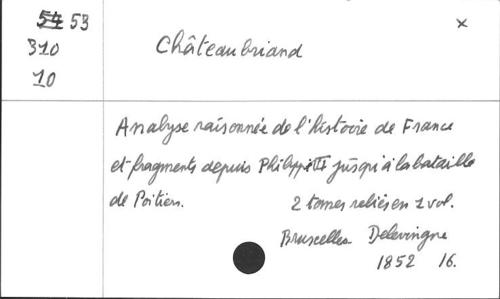 54 53
310
10
x
Châteaubriand
Analyse raisonnée de l'histoire de France
et fragments depuis Philippe VI jusqu'à la bataille
de Poitiers. 2 tomes reliés en 1 vol.
Bruxelles Delevingne
1852 16.